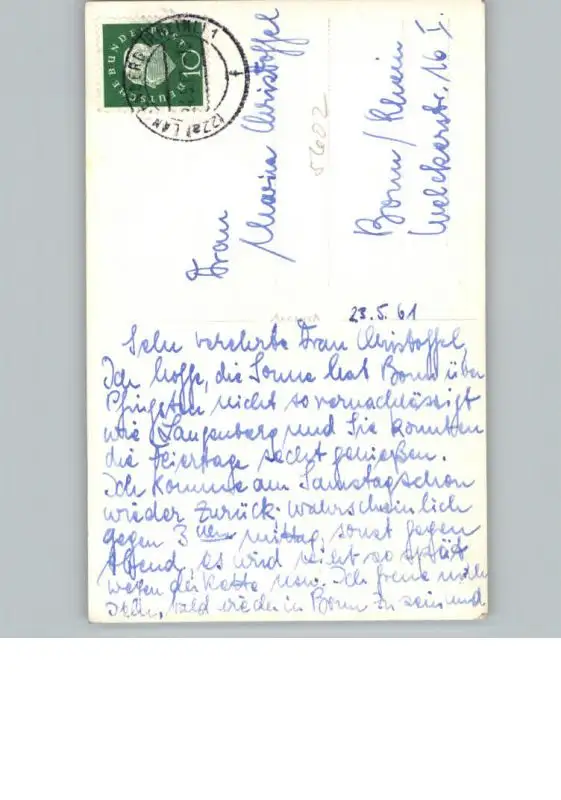 DEUTSCHE BUNDESPOST
10
(22a) LANGENBERG (RHEINL) 1
f
Frau
Marina Christoffel
Bonn/Rhein
Welckerstr. 16 I.
5602
23.5.61
Sehr verehrte Frau Christoffel,
Ich hoffe, die Sonne hat Bonn über
Pfingsten nicht so vernachlässigt
wie Langenberg und Sie konnten
die Feiertage recht genießen.
Ich komme am Samstag schon
wieder zurück. Wahrscheinlich
gegen 3 mittag, sonst gegen
Abend, es wird nicht so spät
wegen der usw. Ich freue mich
sehr, bald wieder in Bonn zu sein und